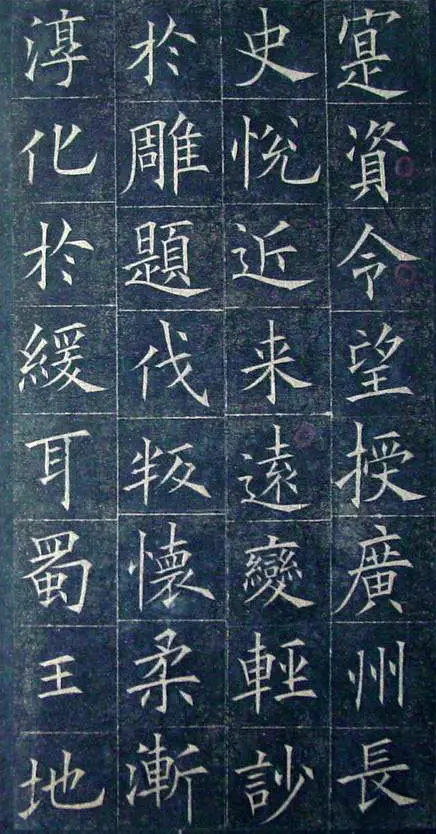 寔資令望授廣州長
史悦近来遠變輕訬
扵雕題伐叛懷柔漸
淳化扵緩耳蜀王地